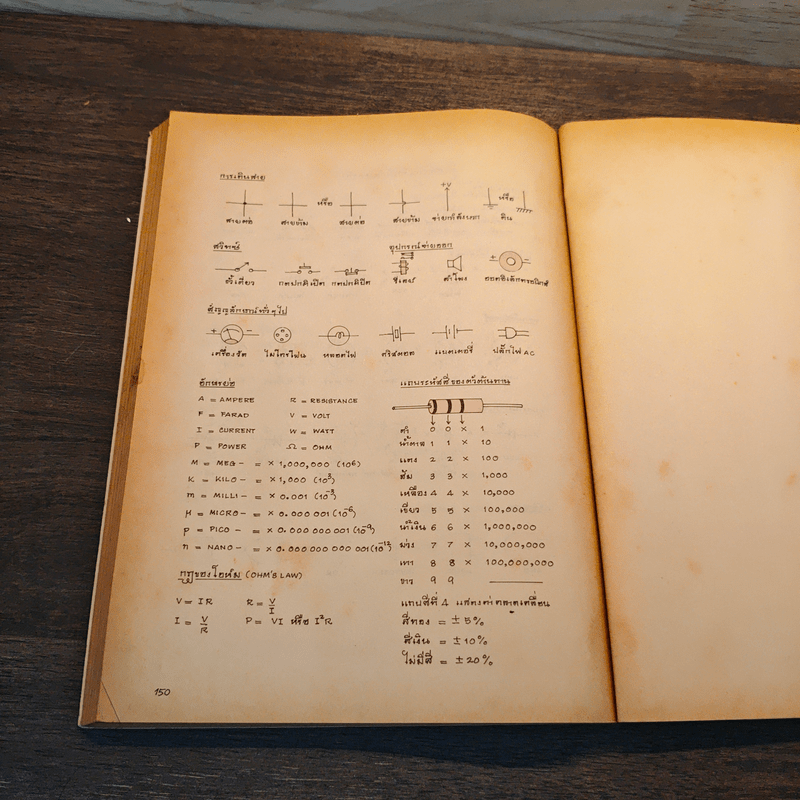 การเดินสาย
+V
หรือ
หรือ
สายต่อ สายข้าม สายต่อ สายข้าม จ่ายกำลังบวก ดิน
สวิทช์
อุปกรณ์จ่ายออก
ขั้วเดียว กดปกติเปิด กดปกติปิด รีเลย์ ลำโพง ออดอิเล็กทรอนิกส์
สัญญลักษณ์ทั่วๆไป
เครื่องวัด ไมโครโฟน หลอดไฟ คริสตอล แบตเตอรี่ ปลั๊กไฟ AC
อักษรย่อ
A = AMPERE R = RESISTANCE
F = FARAD V = VOLT
I = CURRENT W = WATT
P = POWER Ω = OHM
M = MEG - = × 1,000,000 (10⁶)
K = KILO - = × 1,000 (10³)
m = MILLI - = × 0.001 (10⁻³)
μ = MICRO - = × 0.000 001 (10⁻⁶)
p = PICO - = × 0.000 000 001 (10⁻⁹)
n = NANO - = × 0.000 000 000 001 (10⁻¹²)
กฎของโอห์ม (OHM'S LAW)
V = IR R = V/I
I = V/R P = VI หรือ I²R
แถบรหัสสีของตัวต้านทาน
ดำ 0 0 × 1
น้ำตาล 1 1 × 10
แดง 2 2 × 100
ส้ม 3 3 × 1,000
เหลือง 4 4 × 10,000
เขียว 5 5 × 100,000
น้ำเงิน 6 6 × 1,000,000
ม่วง 7 7 × 10,000,000
เทา 8 8 × 100,000,000
ขาว 9 9
แถบสีที่ 4 แสดงค่าคลาดเคลื่อน
สีทอง = ± 5%
สีเงิน = ± 10%
ไม่มีสี = ± 20%
150